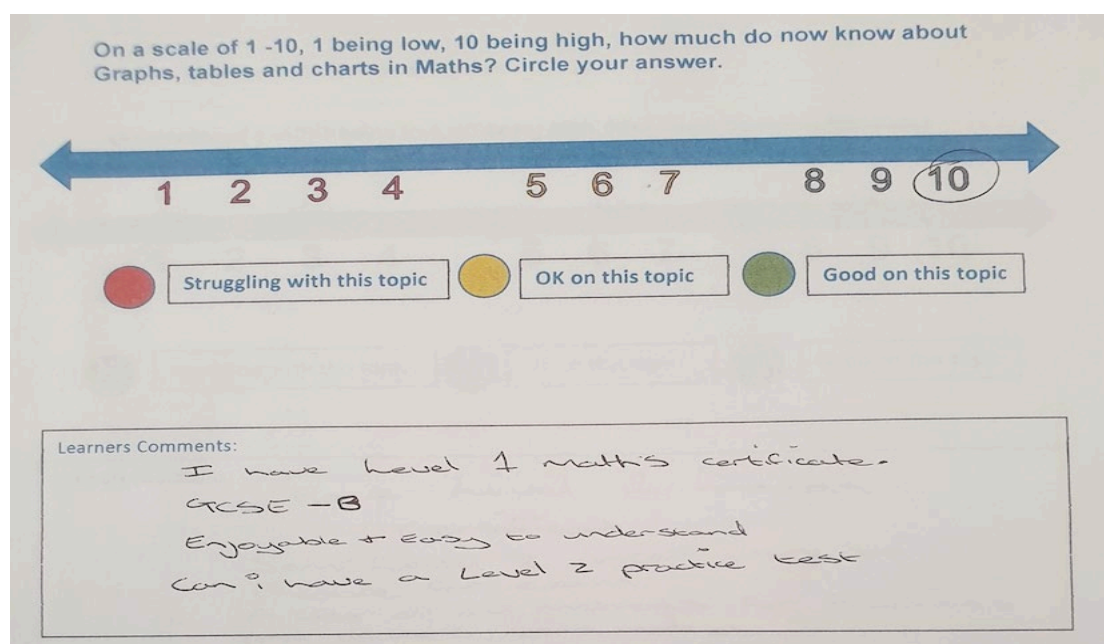 On a scale of 1 -10, 1 being low, 10 being high, how much do now know about
Graphs, tables and charts in Maths? Circle your answer.
1 2 3 4 5 6 7 8 9 10
Struggling with this topic OK on this topic Good on this topic
Learners Comments:
I have Level 1 math's certificate.
GCSE - B
Enjoyable + Easy to understand
Can i have a Level 2 practice test